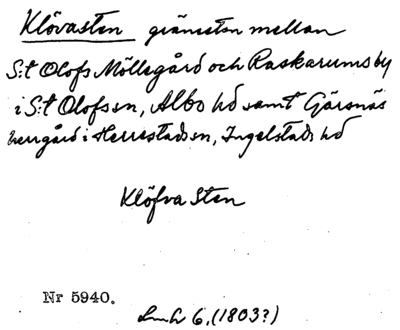 Klövasten gränsten mellan
S:t Olofs Möllegård och Raskarums by
i S:t Olofs sn, Albo hd samt Gärsnäs
herrgård i Herrestads sn, Ingelstads hd
Klöfva Sten
Nr 5940.
6, (1803?)